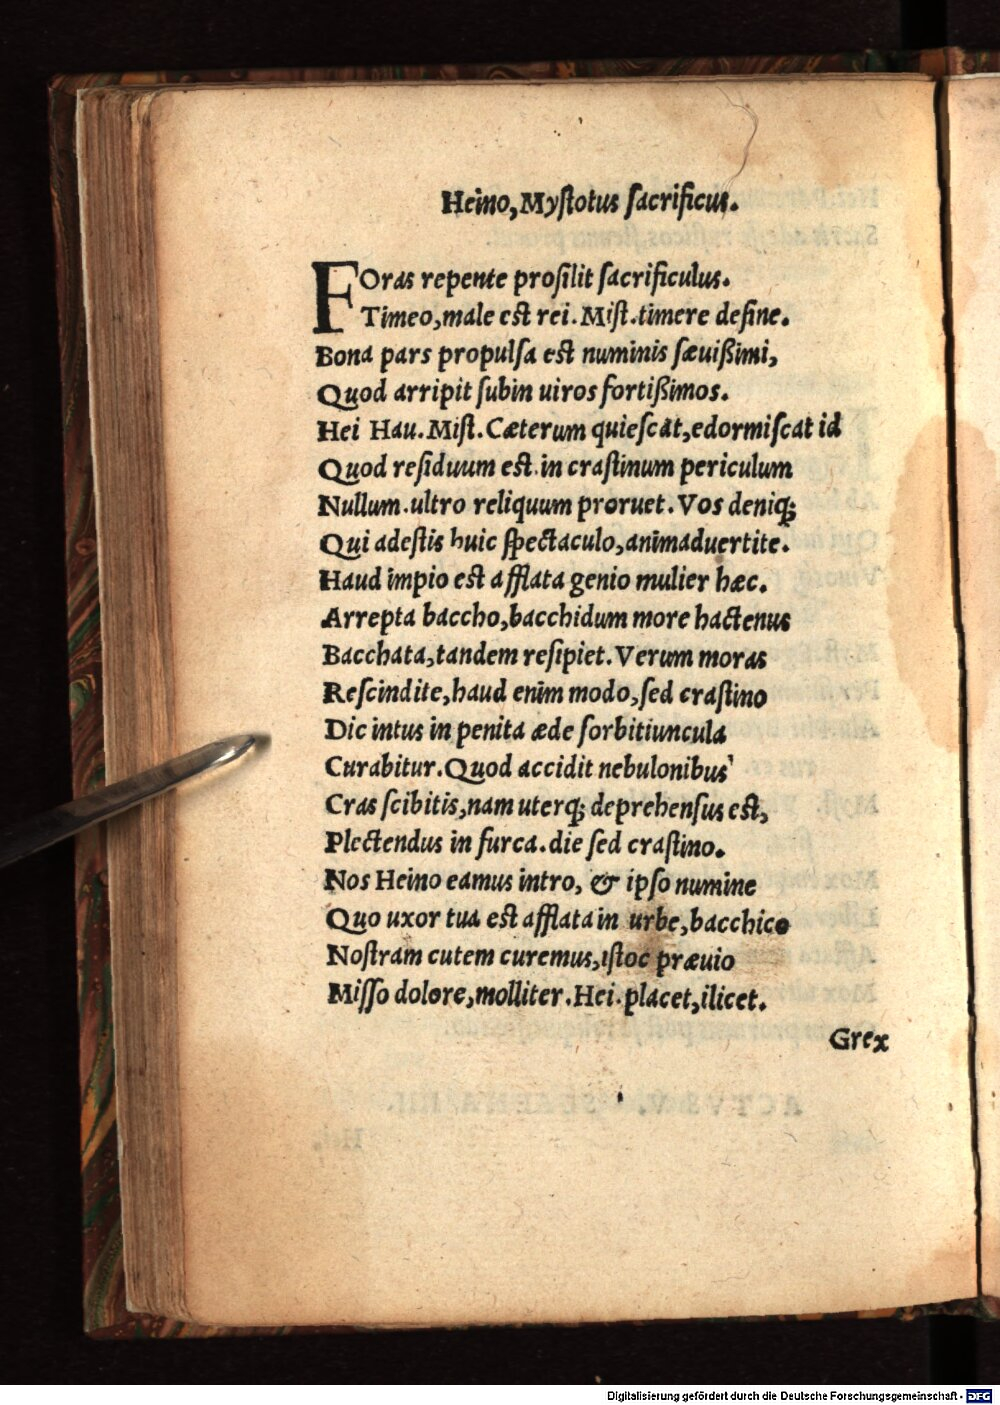 Heino, Myſtotus ſacrificus.
FOras repente proſilit ſacrificulus.
Timeo, male est rei. Miſt. timere deſine.
Bona pars propulſa est numinis ſæuißimi,
Quod arripit ſubin uiros fortißimos.
Hei Hau. Miſt. Cæterum quieſcat, edormiſcat id
Quod reſiduum est. in craſtinum periculum
Nullum. ultro reliquum proruet. Vos deniq;
Qui adeſtis huic ſpectaculo, animaduertite.
Haud impio est afflata genio mulier hæc.
Arrepta baccho, bacchidum more hactenus
Bacchata, tandem reſipiet. Verum moras
Reſcindite, haud enim modo, ſed craſtino
Dic intus in penita æde ſorbitiuncula
Curabitur. Quod accidit nebulonibus
Cras ſcibitis, nam uterq; deprehenſus est,
Plectendus in furca. die ſed craſtino.
Nos Heino eamus intro, & ipſo numine
Quo uxor tua est afflata in urbe, bacchico
Noſtram cutem curemus, iſtoc præuio
Miſſo dolore, molliter. Hei. placet, ilicet.
Grex
Digitalisierung gefördert durch die Deutsche Forschungsgemeinschaft - DFG